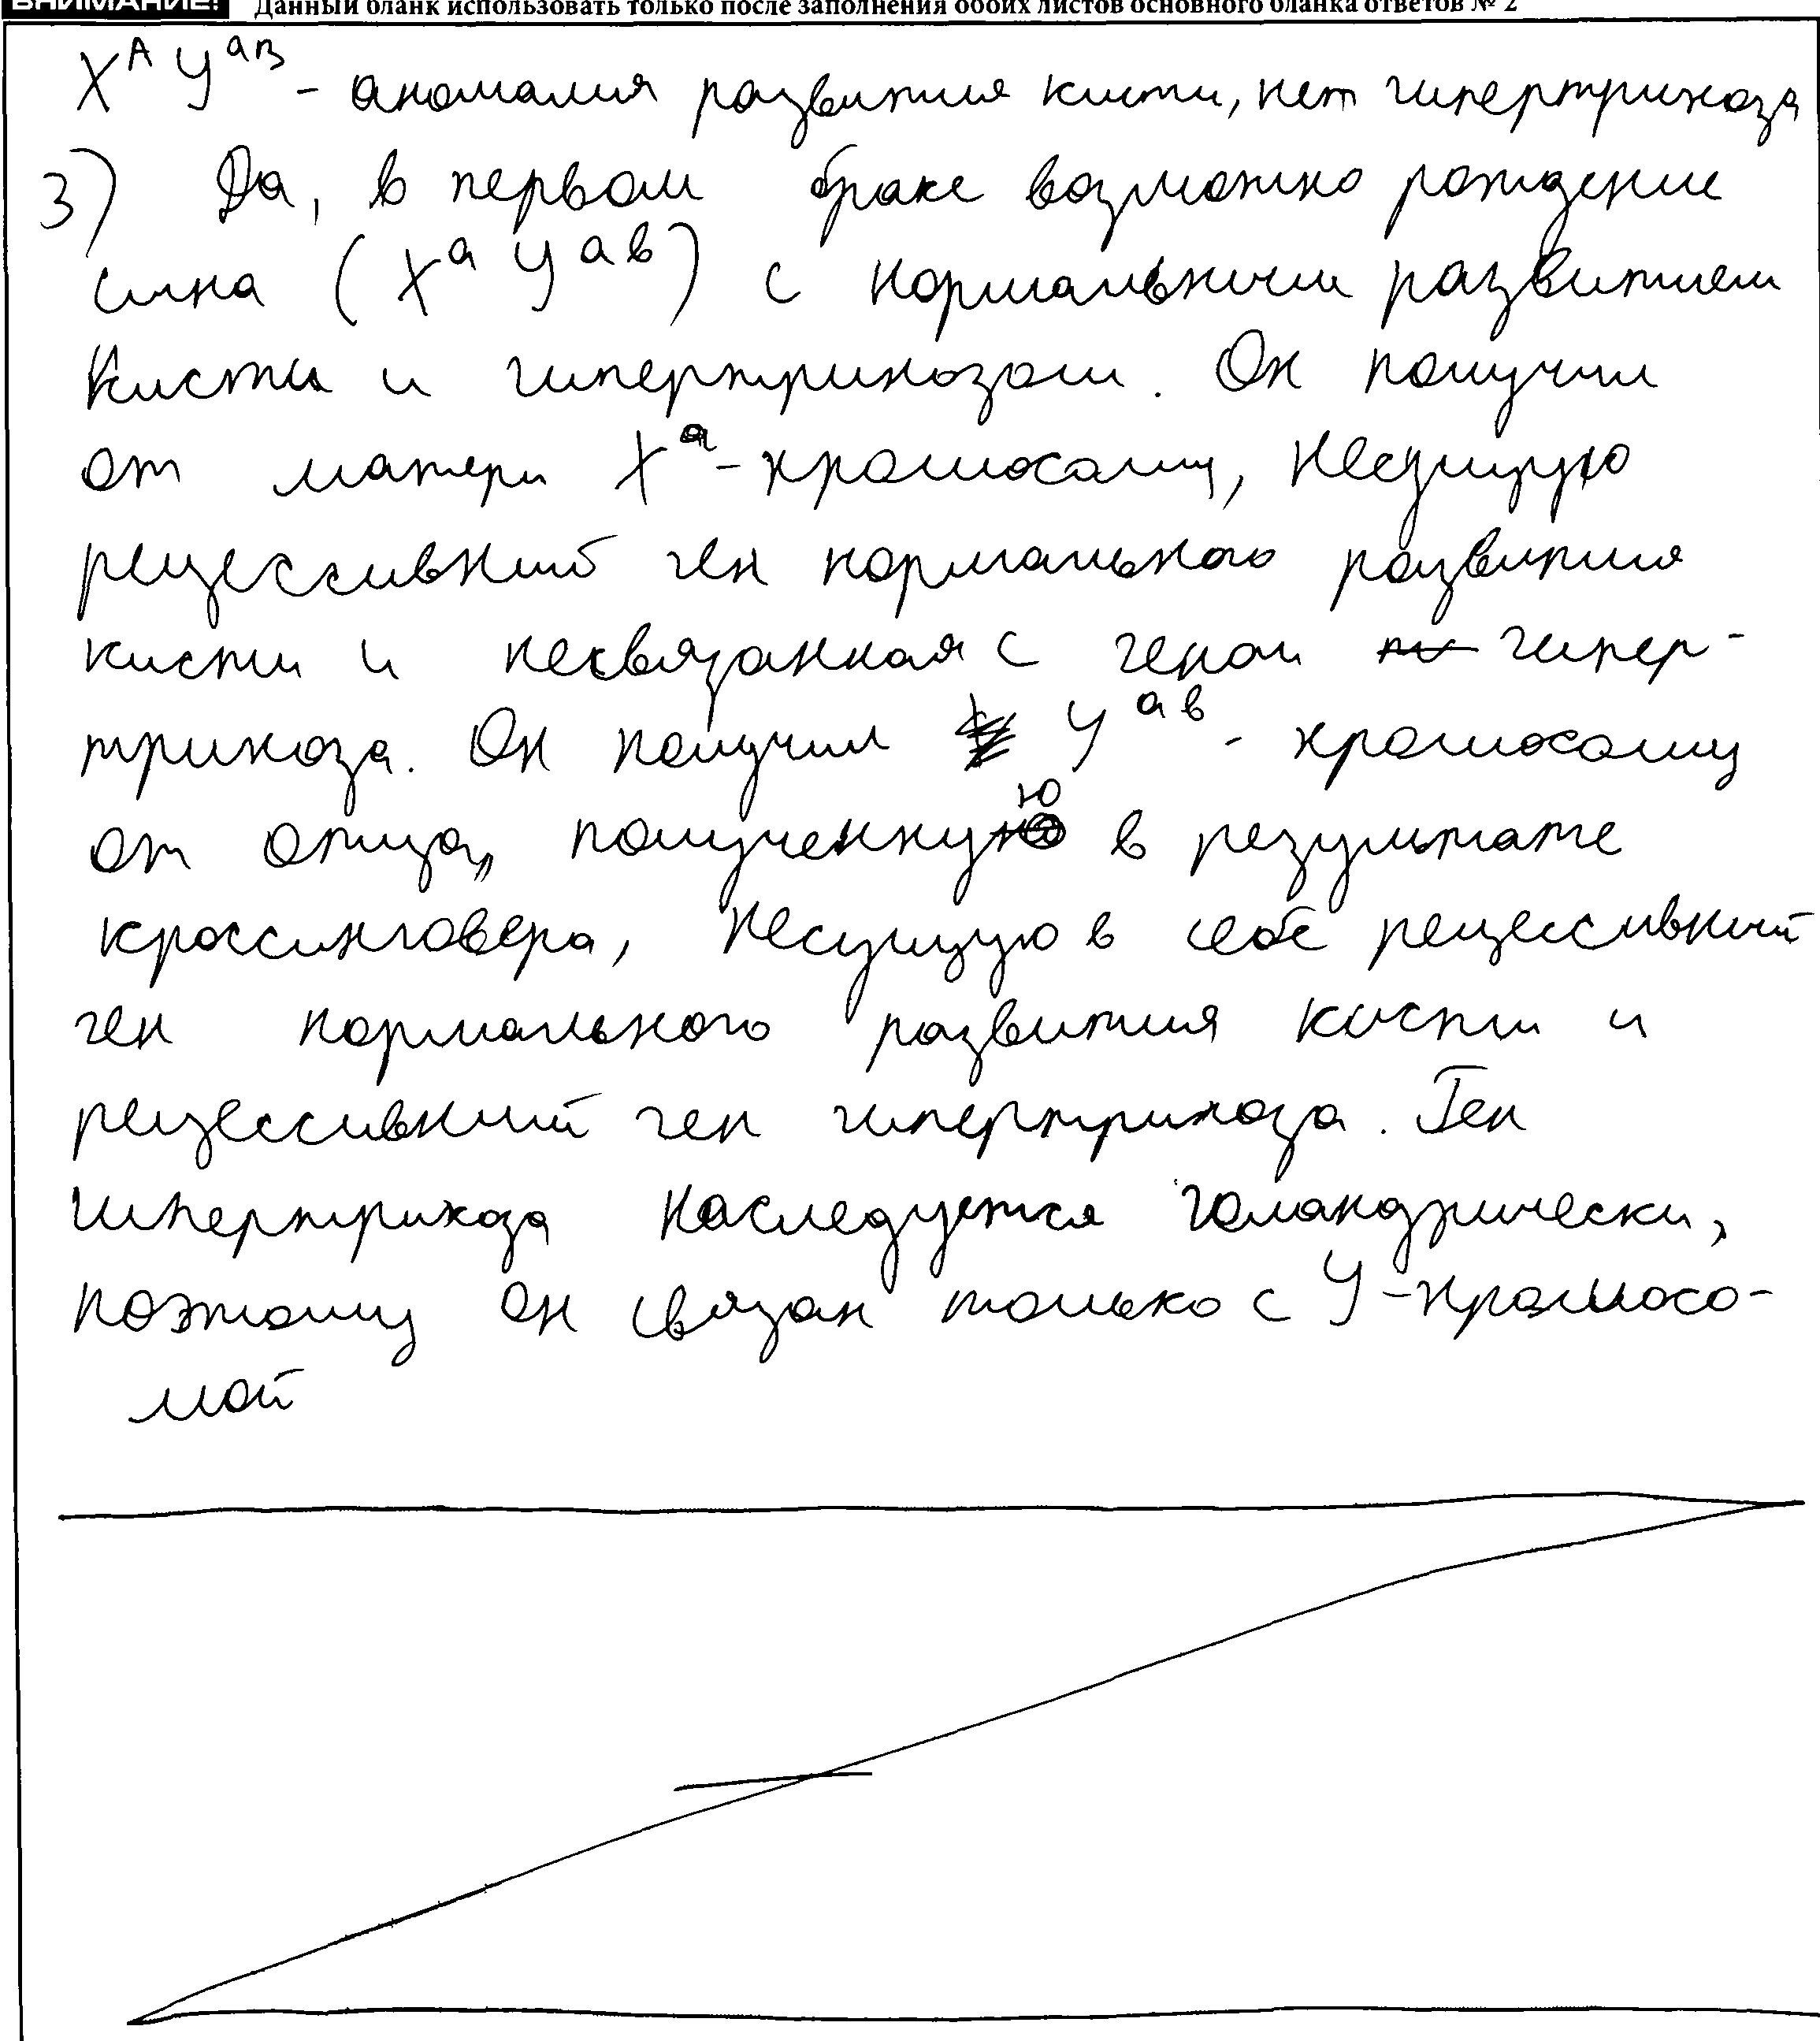 ВНИМАНИЕ! Данный бланк использовать только после заполнения обоих листов основного бланка ответов № 2
X^A Y^aB - аномалия развития кисти, нет гипертрихоза
3) Да, в первом браке возможно рождение
сына (X^a Y^ab) с нормальным развитием
кисти и гипертрихозом. Он получил
от матери X^a-хромосому, несущую
рецессивный ген нормального развития
кисти и несвязанная с геном гипер-
трихоза. Он получил Y^ab - хромосому
от отца, полученную в результате
кроссинговера, несущую в себе рецессивный
ген нормального развития кисти и
рецессивный ген гипертрихоза. Ген
гипертрихоза наследуется голандрически,
поэтому он связан только с Y-хромосо-
мой